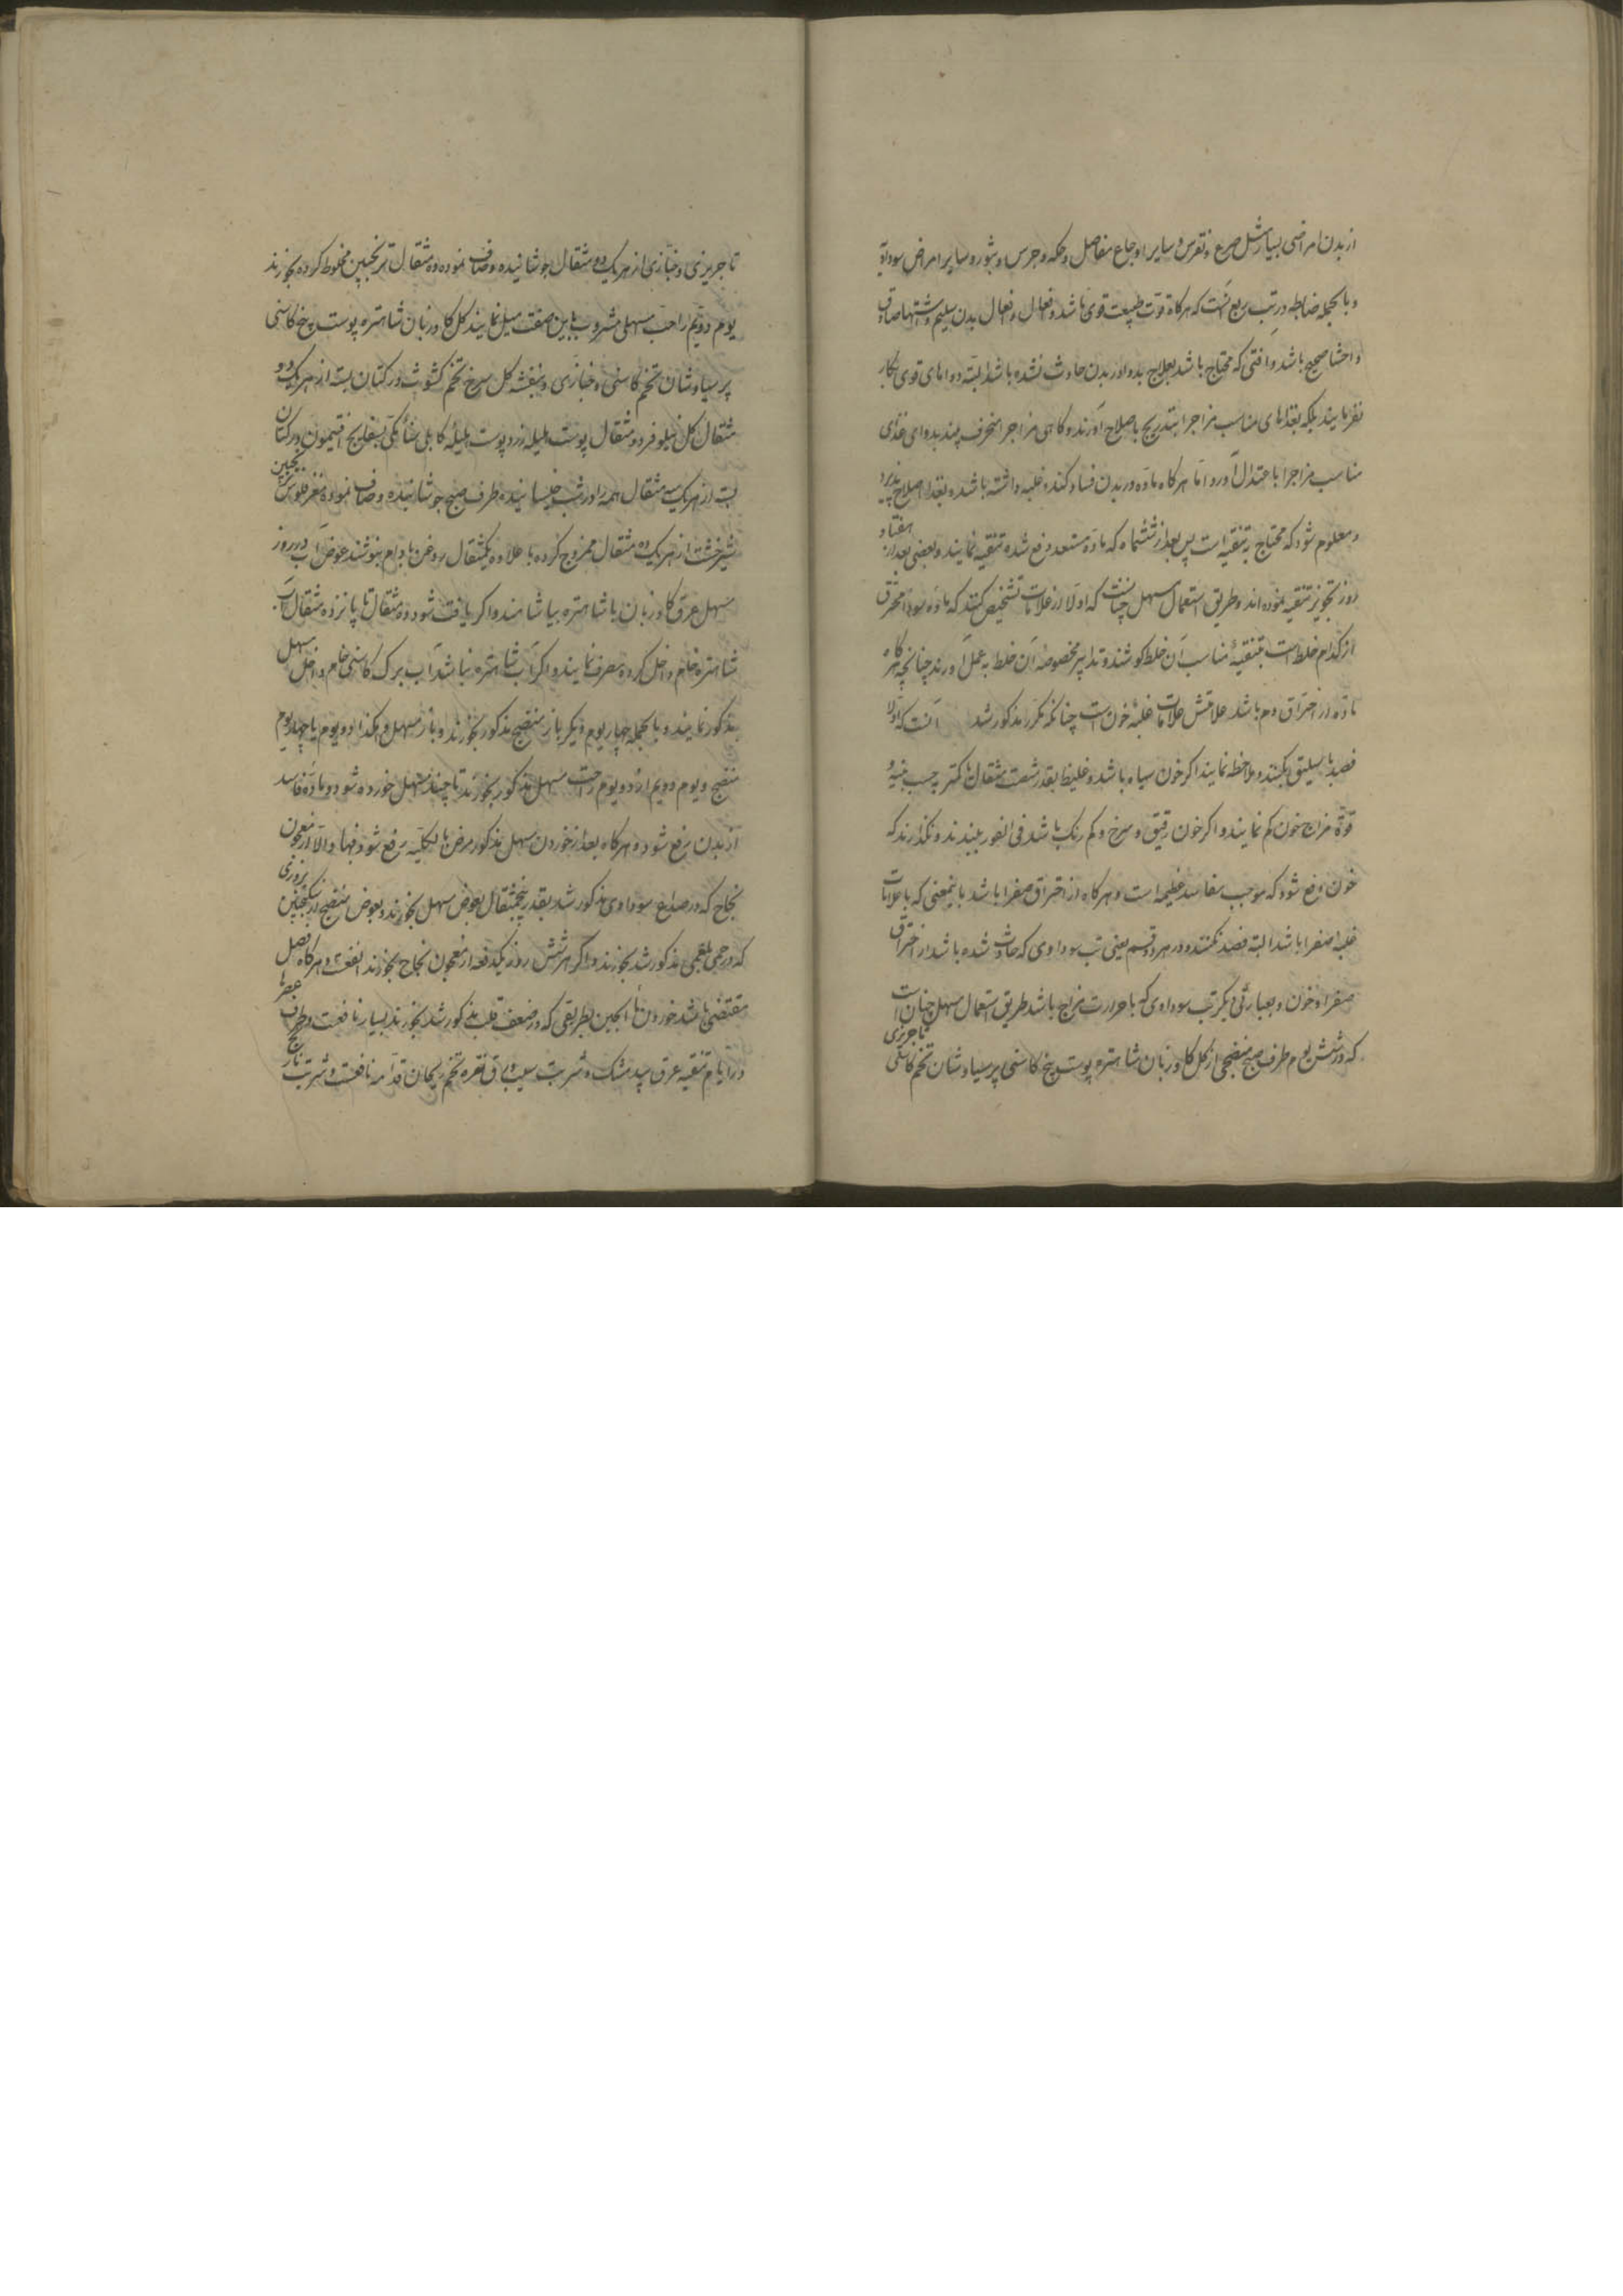 از بدن امراضی بسیار مثل صرع و نقرس و سایر اوجاع مفاصل و حکه و جرس و بثور و سایر امراض سوداویه
و بالجمله ضابطه در تب ربع آنست که هرگاه قوت طبیعت قوی باشد و افعال و انفعال بدن سلیم و اشتها صادق
و احشا صحیح باشد و آفتی که محتاج باشد بعلاج بدوا در بدن حادث نشده باشد البته دواهای قوی بکار
نفرمایند بلکه بغذاهای مناسب مزاجرا بتدریج باصلاح آورند و گاهی مزاجرا منحرف بینند بدوای غذی
مناسب مزاجرا باعتدال آورد اما هرگاه ماده در بدن فساد کند و غلبه داشته باشد و بغذا اصلاح نپذیرد
و معلوم شود که محتاج بتنقیه است پس بعد از ششماه که ماده مستعد دفع شده تنقیه نمایند و بعضی بعد از هفتاد
روز تجویز تنقیه نموده‌اند و طریق استعمال مسهل چنانست که اولا از علامات تشخیص کنند که ماده سودا محترق
از کدام خلط است بتنقیه مناسب آن خلط کوشند و تدابیر مخصوصه آن خلط به عمل آورند چنانچه هرگاه
ماده از احتراق دم باشد علامتش علامات غلبه خون است چنانکه مکرر مذکور شد آنست که اولا
فصد باسلیق بکنند و ملاحظه نمایند اگر خون سیاه باشد و غلیظ بقدر شصت مثقال یا کمتر بحسب بنیه و
قوة مزاج خون کم نمایند و اگر خون رقیق و سرخ و کم رنگ باشد فی الفور ببندند و نگذارند که
خون دفع شود که موجب مفاسد عظیمه است و هرگاه از احتراق صفرا باشد باینمعنی که با علامات
غلبه صفرا باشد البته فصد نکنند و در هر دو قسم یعنی تب سوداوی که حادث شده باشد از احتراق
صفرا و خون و بعبارتی دیگر تب سوداوی که با حرارت مزاج باشد طریق استعمال مسهل چنان است
که در شش یوم طرف صبح منضجی از گل گاوزبان شاهتره پوست بیخ کاسنی پرسیاوشان تخم کاسنی تاجریزی
تاجریزی و خبازی از هر یک دو مثقال جوشانیده و صاف نموده ده مثقال ترنجبین مخلوط کرده بخورند
یوم دویم را حب مسهلی مشروب باین صفت میل نمایند گل گاوزبان شاهتره پوست بیخ کاسنی
پرسیاوشان تخم کاسنی و خبازی و بنفشه گل سرخ تخم کشوث در کتان بسته از هر یک دو
مثقال گل نیلوفر دو مثقال پوست هلیله زرد پوست هلیله کابلی سنا مکی بسفایج افتیمون در کتان
بسته از هر یک سه مثقال همه را در شب خیسانیده طرف صبح جوشانیده و صاف نموده مغز فلوس ترنجبین
شیرخشت از هر یک ده مثقال ممزوج کرده با علاوه یکمثقال روغن بادام بنوشند عوض آب در روز
مسهل عرق گاوزبان یا شاهتره بیاشامند و اگر یافت شود ده مثقال تا پانزده مثقال آب
شاهتره خام داخل کرده مصرف نمایند و اگر آب شاهتره نباشد آب برگ کاسنی خام داخل مسهل
مذکور نمایند و بالجمله چهار یوم دیگر باز منضج مذکور بخورند و باز مسهل و هکذا دو یوم یا چهار یوم
منضج و یوم دویم از دو یوم راحت مسهل مذکور بخورند تا چند مسهل خورده شود و ماده فاسد
از بدن رفع شود و هرگاه بعد از خوردن مسهل مذکور مرض بالکلیه رفع شود فبها و الا از معجون
نجاح که در صداع سوداوی مذکور شد بقدر پنجمثقال بعوض مسهل بخورند و بعوض منضج از سکنجبین بزوری
که در حمی بلغمی مذکور شد بخورند و اگر هر شش روز یکدفعه از معجون نجاح بخورند انفعست و هرگاه فصل
مقتضی باشد خوردن ماءالجبن بطریقی که در ضعف قلب مذکور شد بخورند بسیار نافعست و طرف عصرها
در ایام تنقیه عرق بیدمشک و شربت سیب و ورق نقره تخم ریحان قدامه نافعست و شربت نارنج